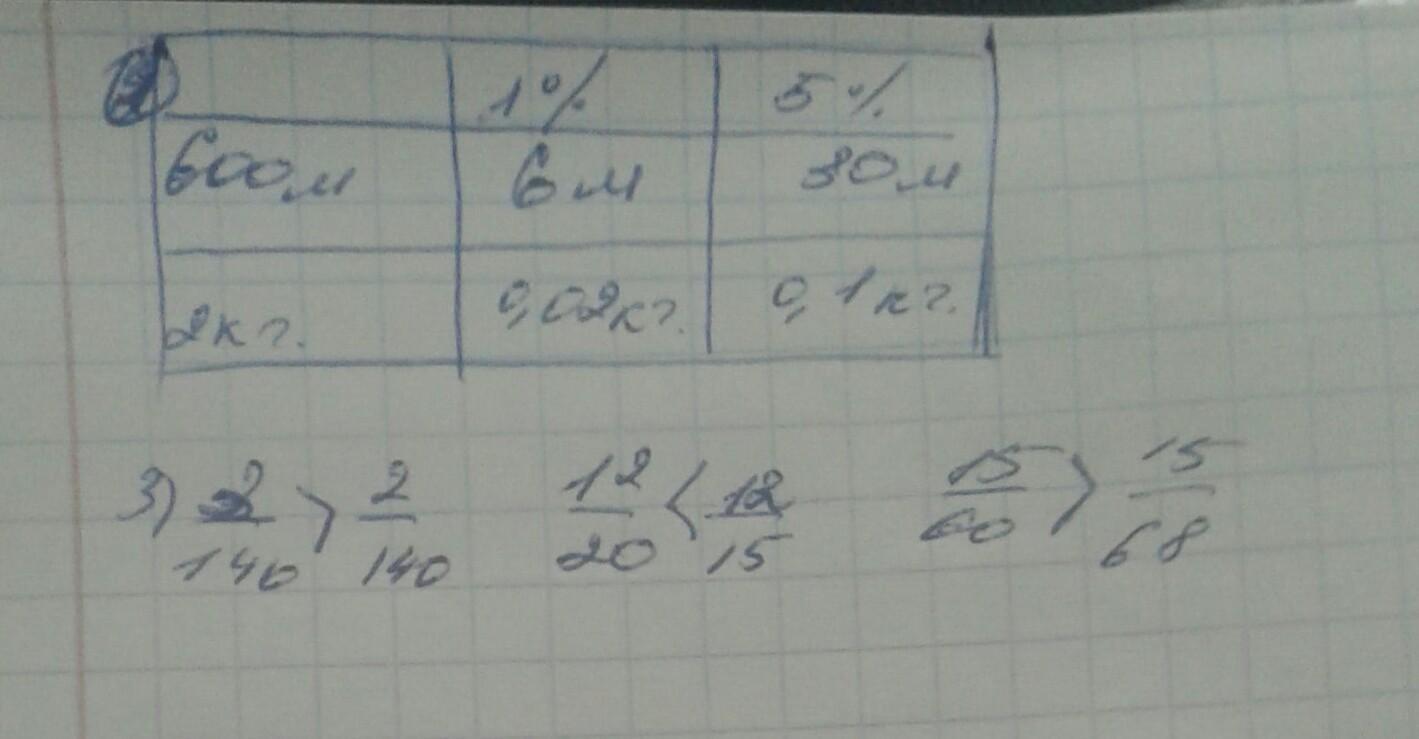 1% 5%
600м 6м 30м
2кг. 0,02кг. 0,1кг.
3) 2/140 > 2/140 12/20 < 12/15 15/60 > 15/68